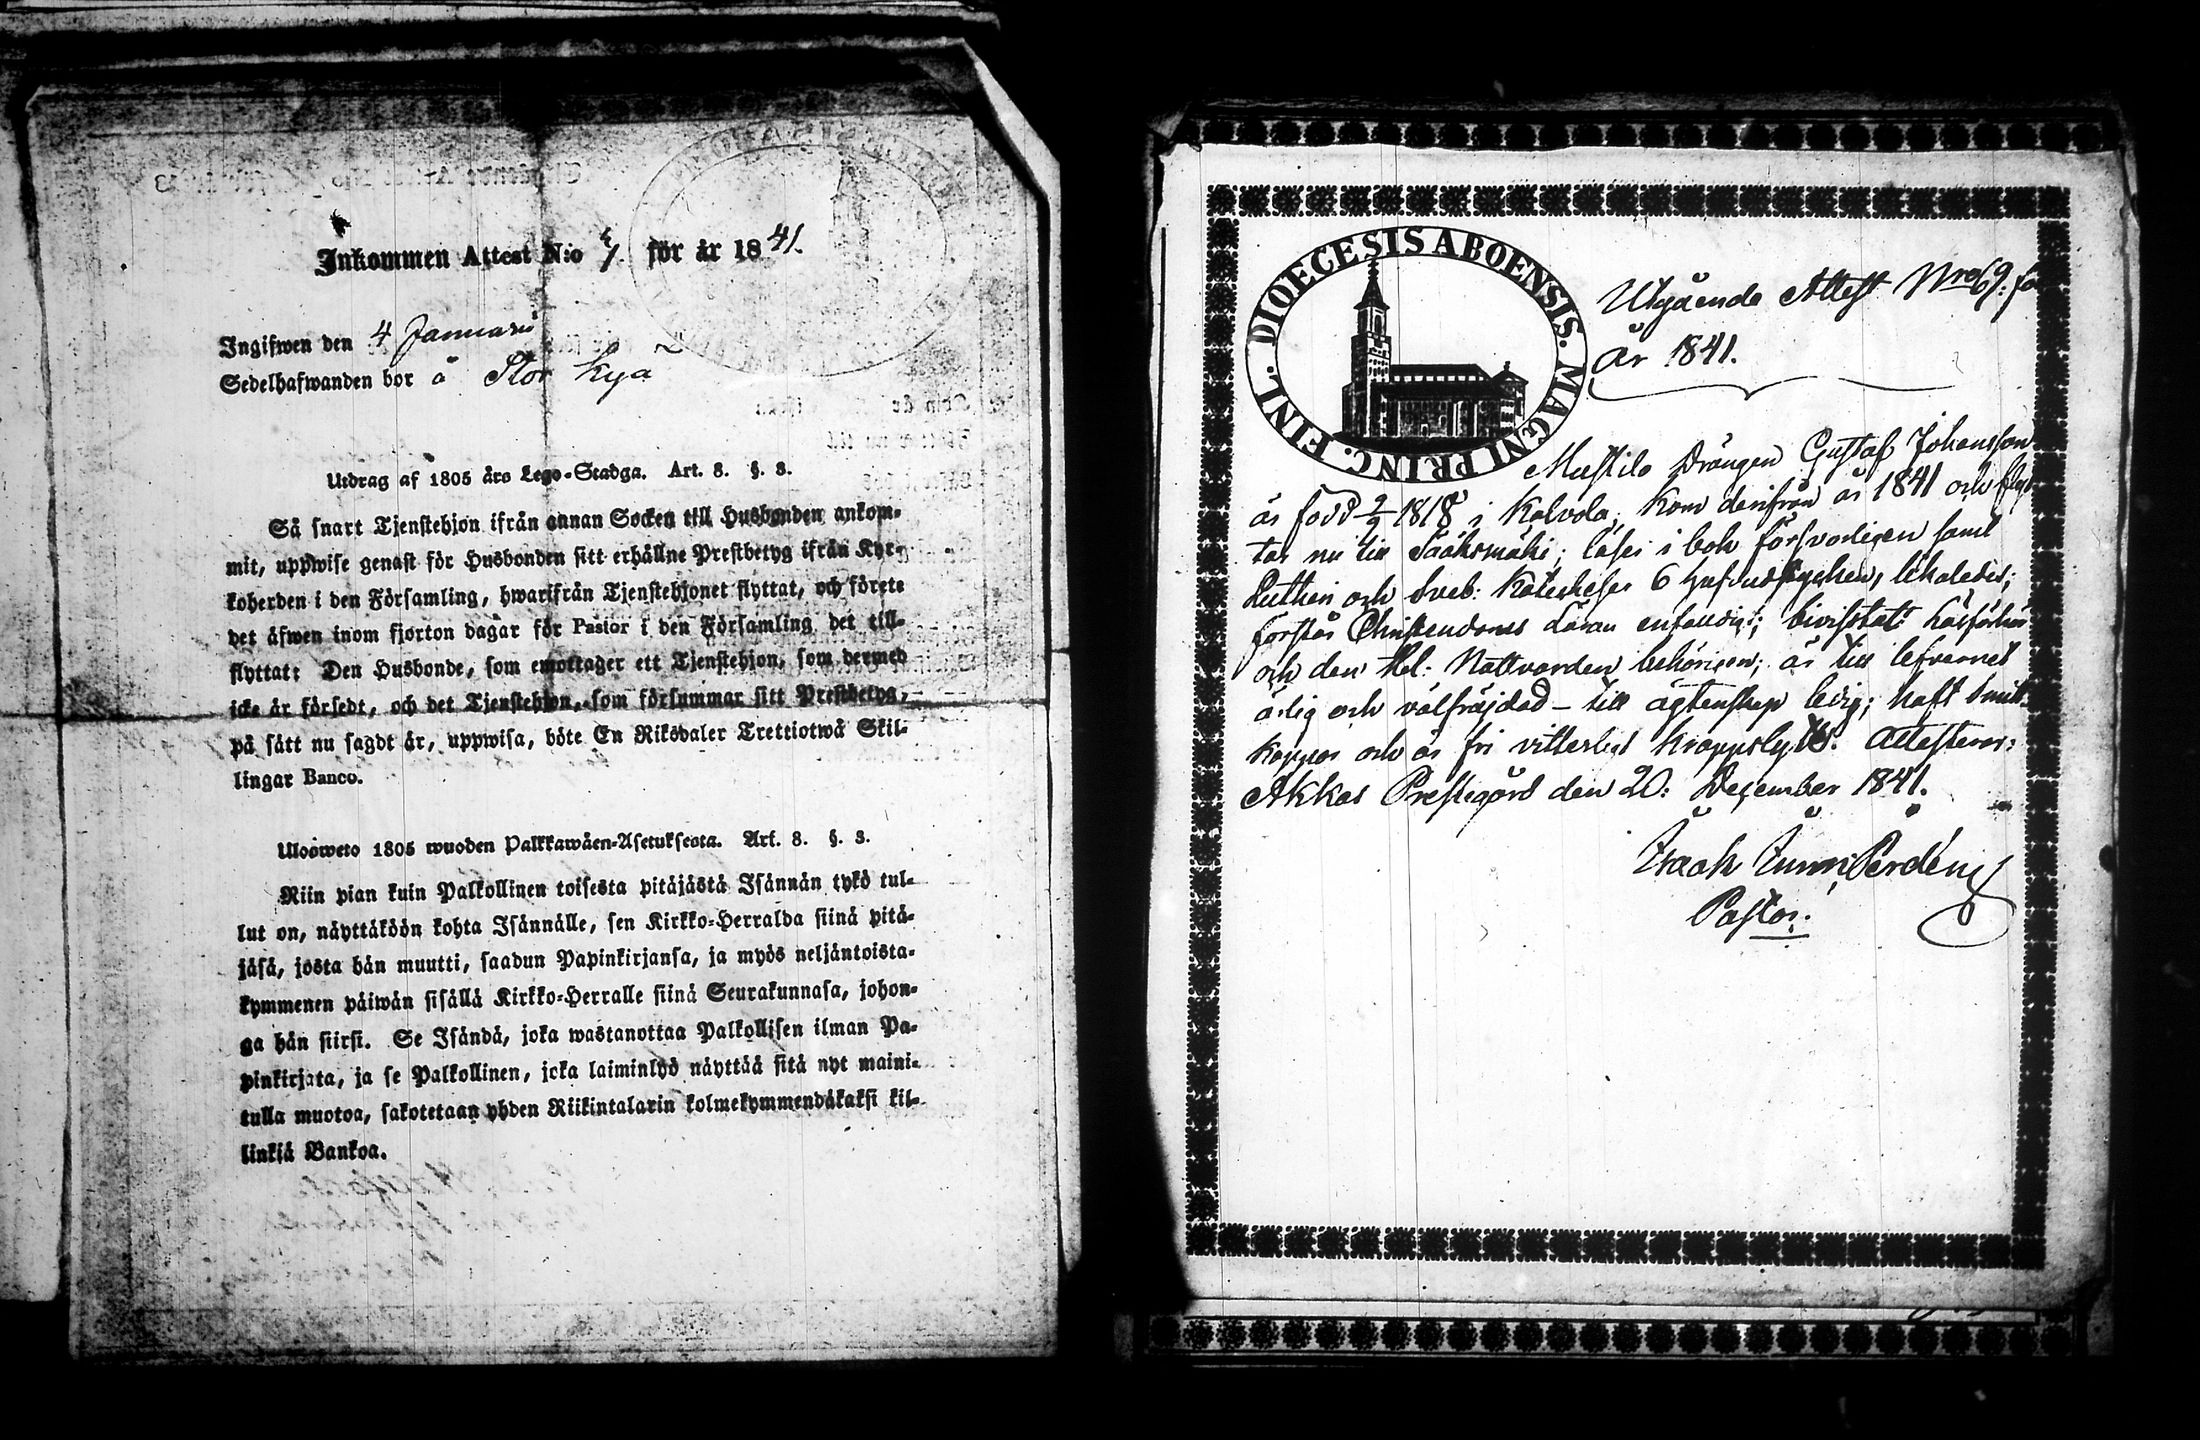 Inkommen Attest N:o för år 1841.
Ingifwen den 4 Januari
Sedelhafwanden bor å Stor Kyå
Utdrag af 1805 års Lego-Stadga. Art. 8. §. 3.
Så snart Tjenstehjon ifrån annan Socken till Husbonden ankom-
mit, uppwise genast för Husbonden sitt erhållne Prestbetyg ifrån Kyr-
koherden i den Församling, hwarifrån Tjenstehjonet flyttat, och förete
det äfwen inom fjorton dagar för Pastor i den Församling det till-
flyttat: Den Husbonde, som emottager ett Tjenstehjon, som dermed
icke är försedt, och det Tjenstehjon, som försummar sitt Prestbetyg,
på sätt nu sagdt är, uppwisa, böte En Riksdaler Trettiotwå Skil-
lingar Banco.
Ulosweto 1805 wuoden Palkkawäen-Asetuksesta. Art. 8. §. 3.
Niin pian kuin Palkollinen toisesta pitäjästä Isännän tykö tul-
lut on, näyttäköön kohta Isännälle, sen Kirkko-Herralda siinä pitä-
jäsä, josta hän muutti, saadun Papinkirjansa, ja myös neljäntoista-
kymmenen päiwän sisällä Kirkko-Herralle siinä Seurakunnasa, johon-
ga hän siirsi. Se Isändä, joka wastanottaa Palkollisen ilman Pa-
pinkirjata, ja se Palkollinen, joka laiminlyö näyttää sitä nyt maini-
tulla muotoa, sakotetaan yhden Riikintalarin kolmekymmendäkaksi kil-
linkiä Bankoa.
DIOECESIS ABOENSIS. MAGNI PRINC. FINL.
Utgående Attest Nro 69: för
år 1841.
Mustila Drängen Gustaf Johansson
är född 2/9 1818 i Kalvola, kom derifrån år 1841 och flyt
tar nu till Sääksmäki; läser i bok försvarligen samt
Lutheri och Sveb: Katecheser 6 hufvudstycken, likaledes;
förstår Christendoms Läran enfaldigt; bivistat Läsförhör
och den Hel: Nattvarden behörigen; är till lefvernet
ärlig och välfräjdad - till ägtenskap ledig; haft Smitt-
koppor och är fri vitterligt kroppslyte. Attesterar;
Akkas Prestegård den 20: December 1841.
Isaak
Pastor.